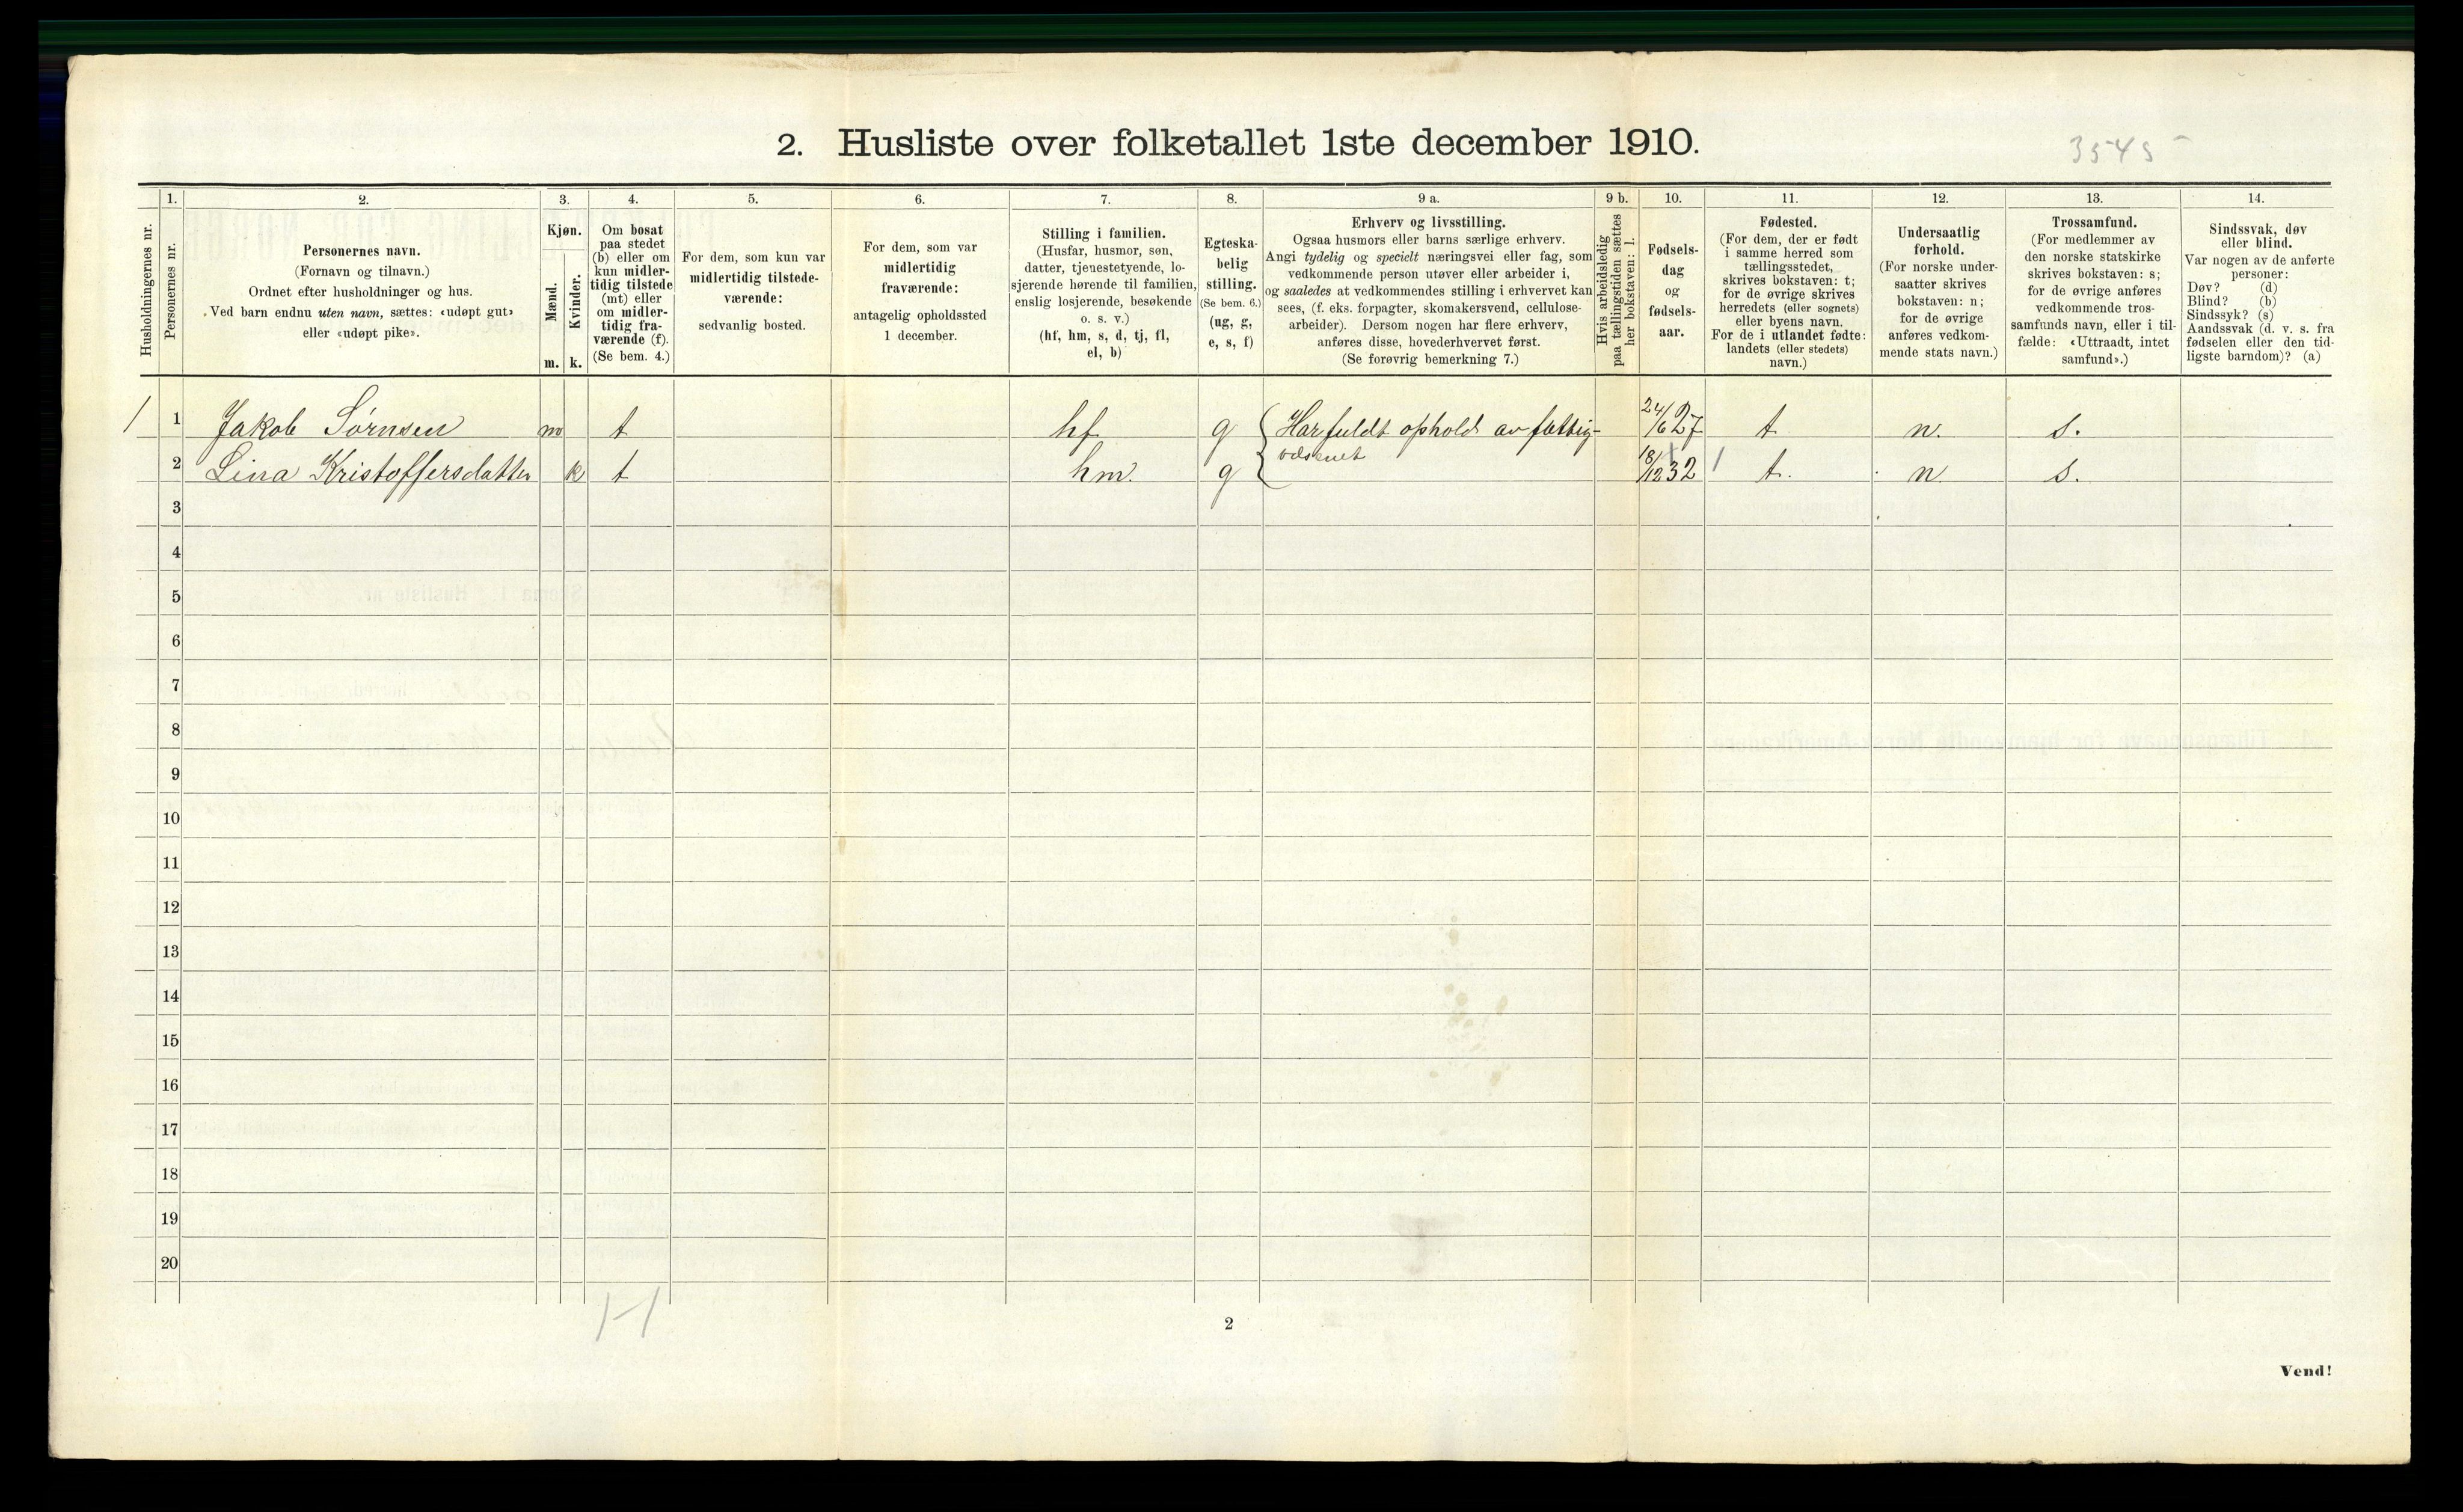 2. Husliste over folketallet 1ste december 1910.
3545
Husholdningernes nr.
1.
Personernes nr.
2.
Personernes navn.
(Fornavn og tilnavn.)
Ordnet efter husholdninger og hus.
Ved barn endnu uten navn, sættes: «udøpt gut»
eller «udøpt pike».
3.
Kjøn.
Mænd.
m.
Kvinder.
k.
4.
Om bosat
paa stedet
(b) eller om
kun midler-
tidig tilstede
(mt) eller
om midler-
tidig fra-
værende (f).
(Se bem. 4.)
5.
For dem, som kun var
midlertidig tilstede-
værende:
sedvanlig bosted.
6.
For dem, som var
midlertidig
fraværende:
antagelig opholdssted
1 december.
7.
Stilling i familien.
(Husfar, husmor, søn,
datter, tjenestetyende, lo-
sjerende hørende til familien,
enslig losjerende, besøkende
o. s. v.)
(hf, hm, s, d, tj, fl,
el, b)
8.
Egteska-
belig
stilling.
(Se bem. 6.)
(ug, g,
e, s, f)
9 a.
Erhverv og livsstilling.
Ogsaa husmors eller barns særlige erhverv.
Angi tydelig og specielt næringsvei eller fag, som
vedkommende person utøver eller arbeider i,
og saaledes at vedkommendes stilling i erhvervet kan
sees, (f. eks. forpagter, skomakersvend, cellulose-
arbeider). Dersom nogen har flere erhverv,
anføres disse, hovederhvervet først.
(Se forøvrig bemerkning 7.)
9 b.
Hvis arbeidsledig
paa tællingstiden sættes
her bokstaven: l.
10.
Fødsels-
dag
og
fødsels-
aar.
11.
Fødested.
(For dem, der er født
i samme herred som
tællingsstedet,
skrives bokstaven: t;
for de øvrige skrives
herredets (eller sognets)
eller byens navn.
For de i utlandet fødte:
landets (eller stedets)
navn.)
12.
Undersaatlig
forhold.
(For norske under-
saatter skrives
bokstaven: n;
for de øvrige
anføres vedkom-
mende stats navn.)
13.
Trossamfund.
(For medlemmer av
den norske statskirke
skrives bokstaven: s;
for de øvrige anføres
vedkommende tros-
samfunds navn, eller i til-
fælde: «Uttraadt, intet
samfund».)
14.
Sindssvak, døv
eller blind.
Var nogen av de anførte
personer:
Døv? (d)
Blind? (b)
Sindssyk? (s)
Aandssvak (d. v. s. fra
fødselen eller den tid-
ligste barndom)? (a)
1 1 Jakob Sørnsen m t hf g Har fuldt ophold av fattig- 24/6 27 t n. s.
væsenet
2 Lina Kristoffersdatter k t hm. g 18/12 32 t. n. s.
3
4
5
6
7
8
9
10
11
12
13
14
15
16
17
18
19
20
1-1
2
Vend!